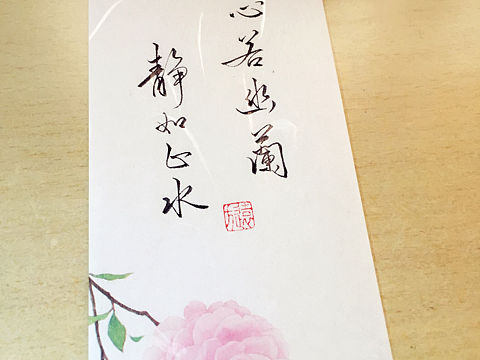 心若幽蘭
靜如止水